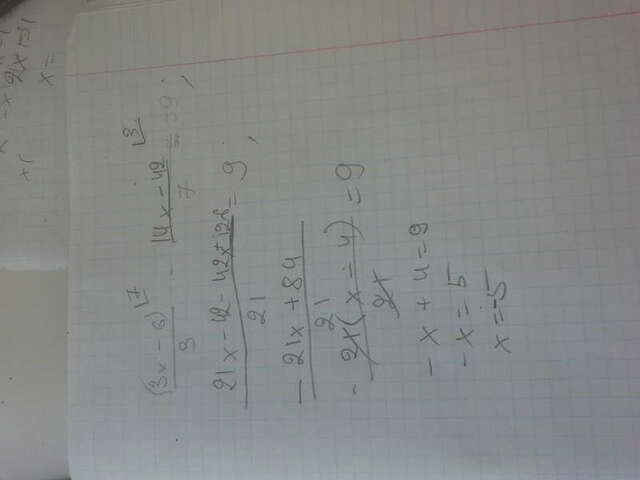 (3x - 6)⌊7 / 3 - 14x - 42⌊3 / 7 = 9;
21x - 42 - 42x + 126 / 21 = 9;
- 21x + 84 / 21
- 21(x - 4) / 21 = 9
- x + 4 = 9
- x = 5
x = -5
x =